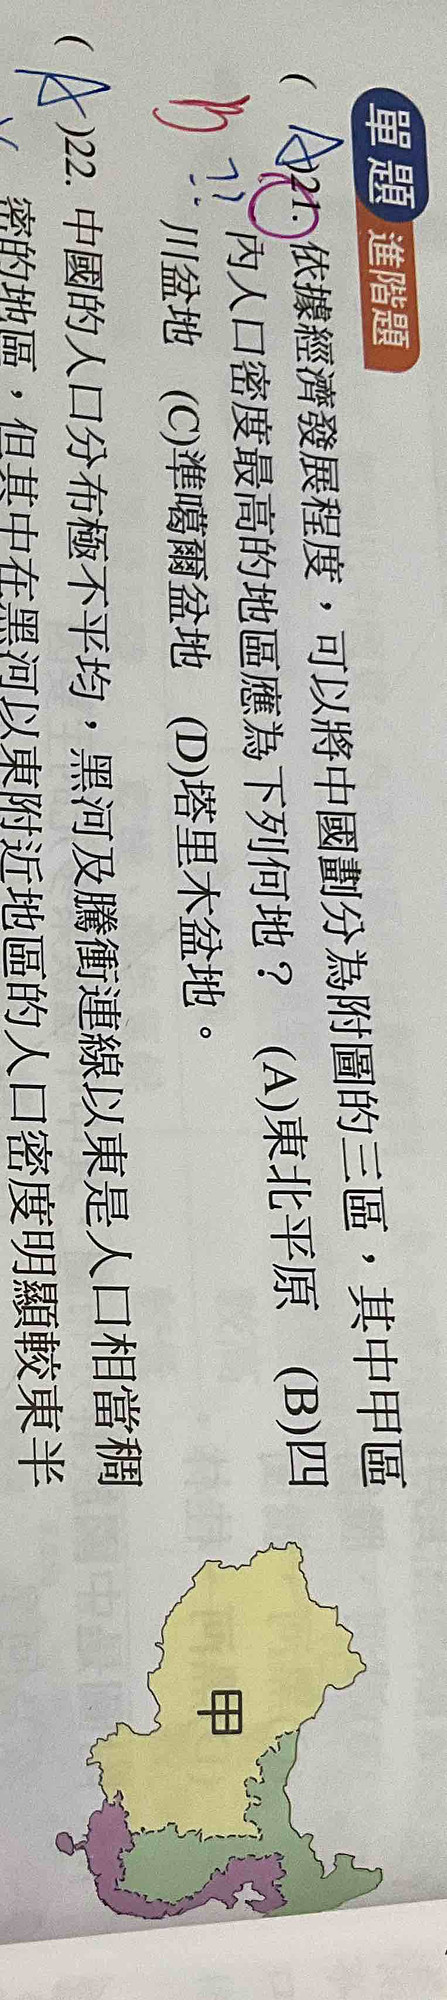 單題 進階題
( A )21. 依據經濟發展程度，可以將中國劃分為附圖的三區，其中甲區
B ?? 內人口密度最高的地區應為下列何地？ (A)東北平原 (B)四
川盆地 (C)準噶爾盆地 (D)塔里木盆地。
甲
( A )22. 中國的人口分布極不平均，黑河及騰衝連線以東是人口相當稠
密的地區，但其中在黑河以東附近地區的人口密度明顯較東半